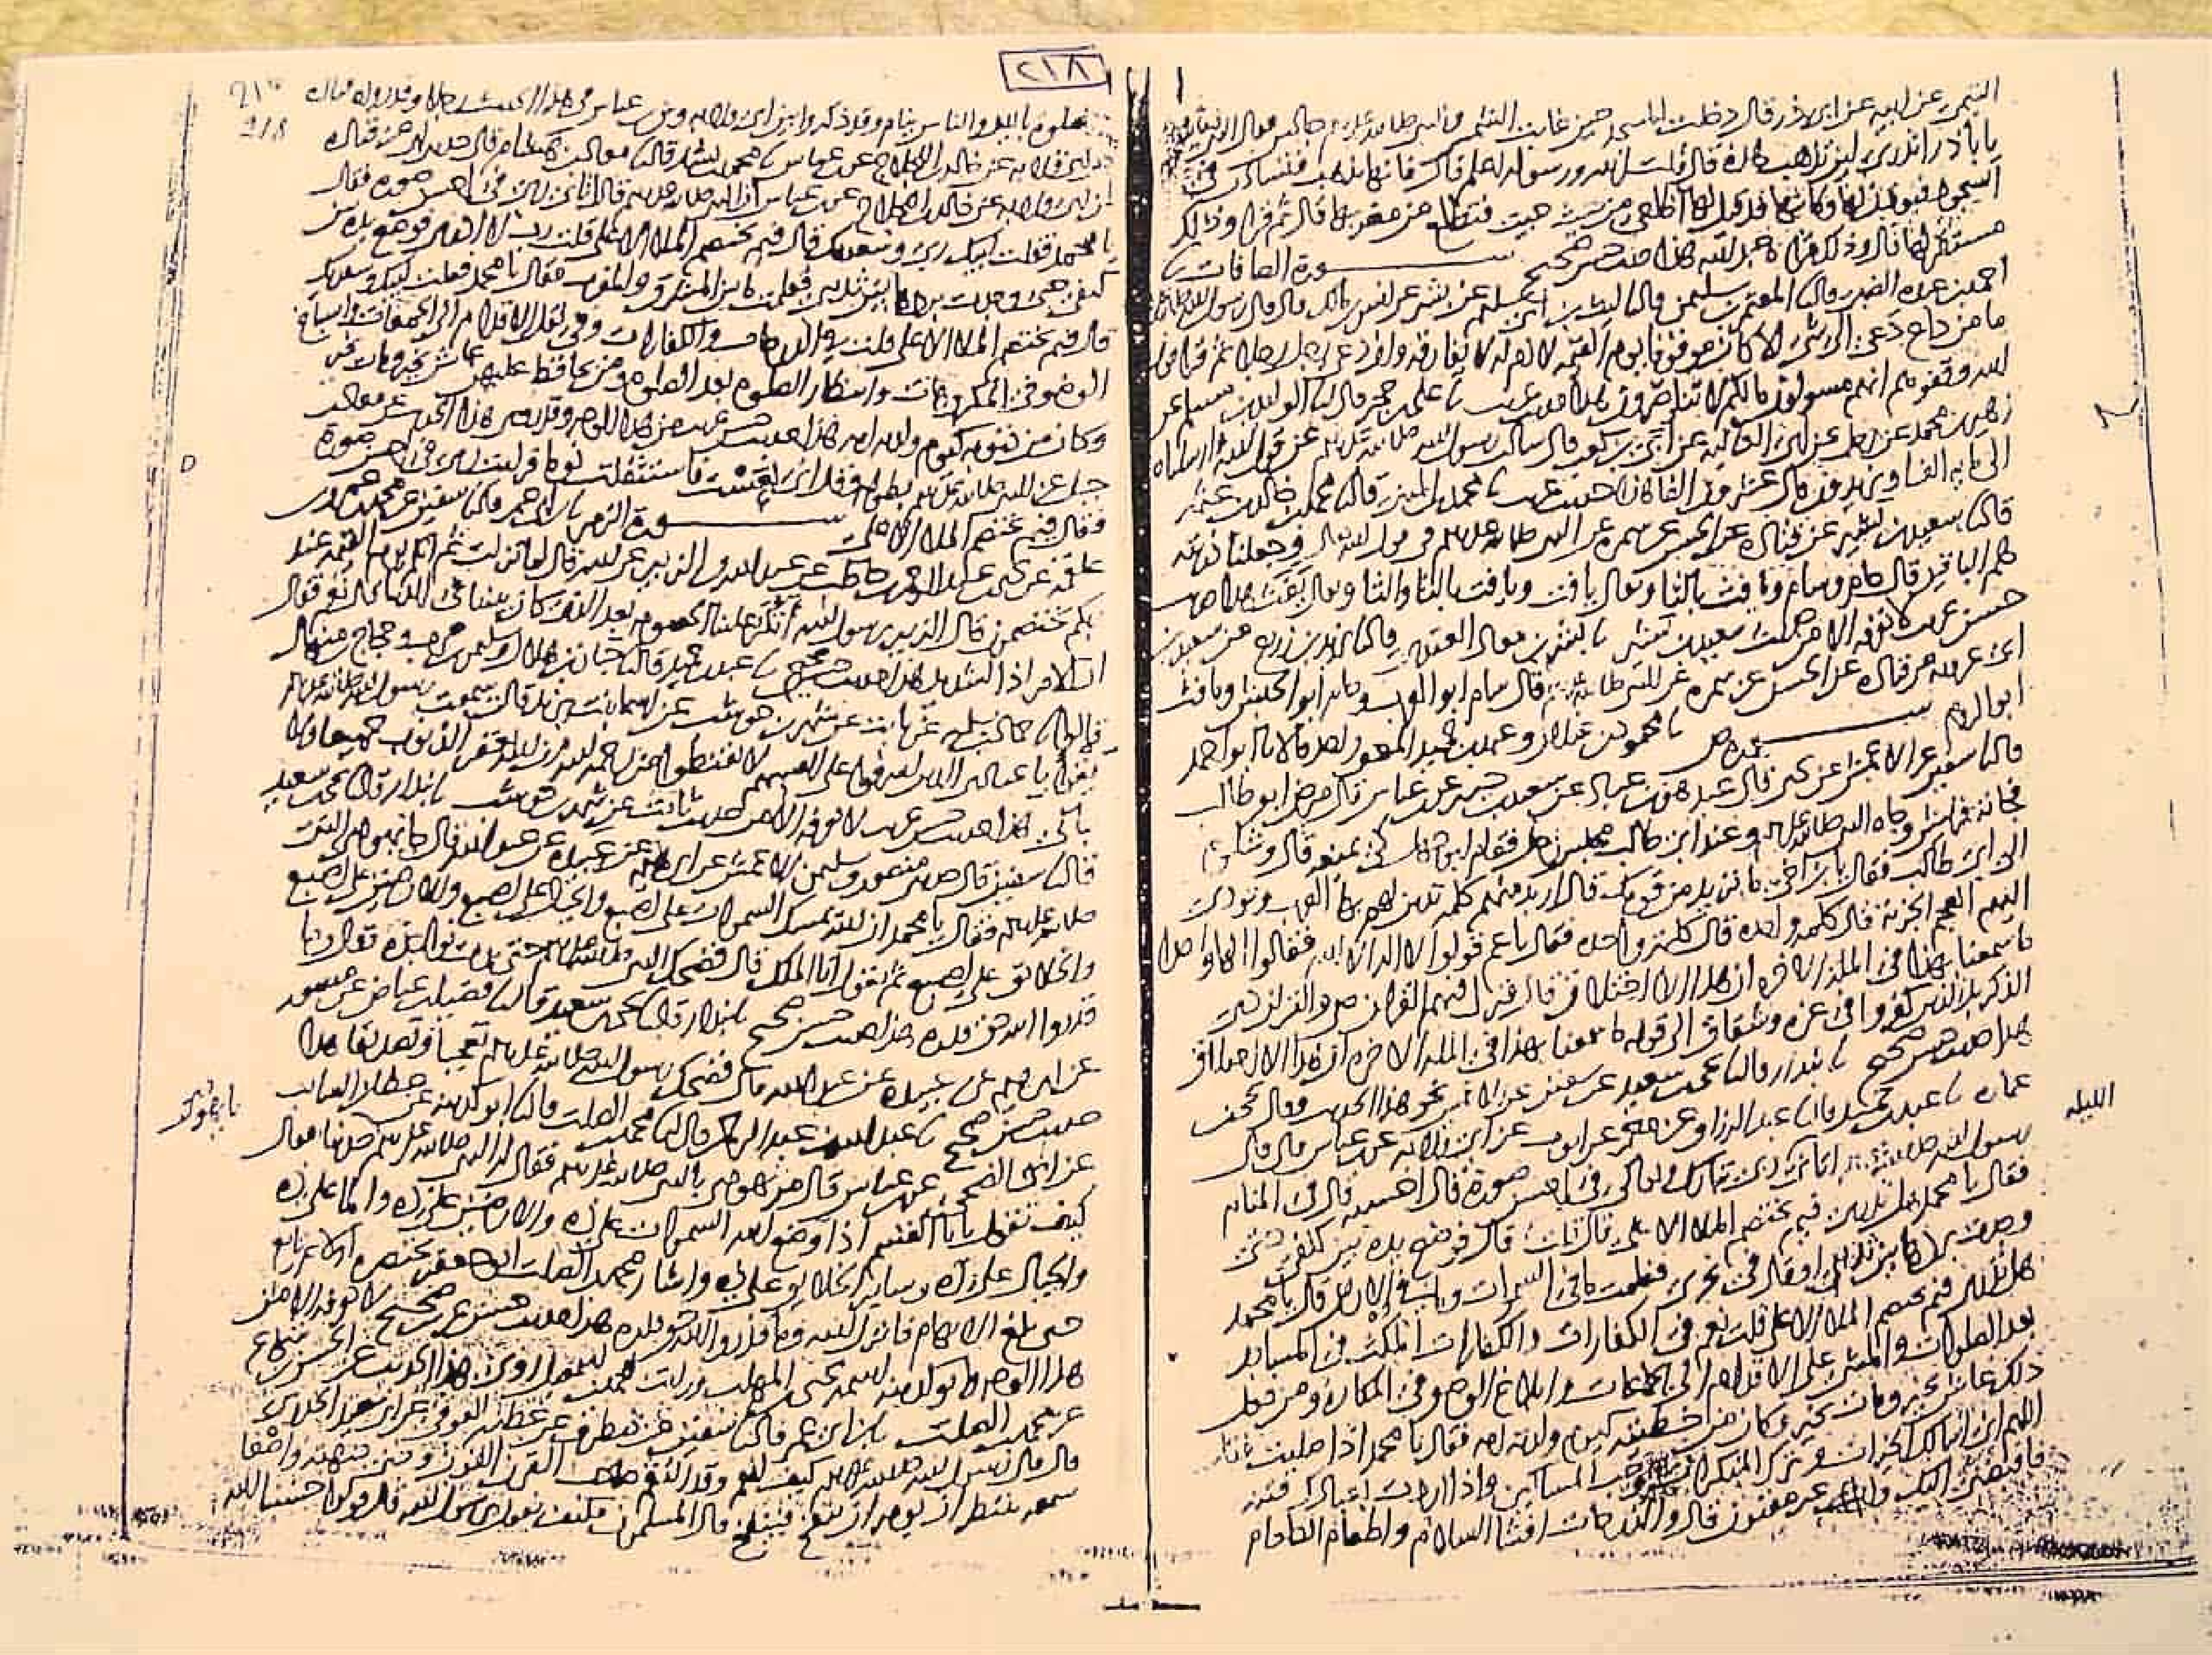 التيمي عن ابيه عن ابي ذر قال دخلت المسجد حين غابت الشمس والنبي صلى الله عليه وسلم جالس فقال النبي
يا باذر اتدري اين تذهب هذه قال قلت الله ورسوله اعلم قال فانها تذهب فتستاذن في
السجود فيوذن لها وكانها قد قيل لها اطلعي من حيث جيت فتطلع من مغربها قال ثم قرا وذلك
مستقر لها قال وذلك قراة عبد الله هذا حديث حسن صحيح سورة الصافات
احمد بن عبدة الضبي قال نا المعتمر بن سليمن قال نا ليث بن ابي سليم عن بشر عن انس بن مالك قال قال رسول الله
ما من داع دعى الى شى الا كان موقوفا يوم القيمة لازما له لا يفارقه وان دعى رجل رجلا ثم قرا قول
الله وقفوهم انهم مسولون ما لكم لا تناصرون هذا حديث غريب نا علي بن حجر قال نا الوليد بن مسلم عن
زهير بن محمد عن رجل عن ابي العالية عن ابي بن كعب قال سالت رسول الله صلى الله عليه وسلم عن قول الله وارسلناه
الى ماية الف او يزيدون قال عشرون الفا هذا حديث غريب نا محمد بن المثنى قال نا محمد بن خالد بن عثمة
قال نا سعيد بن بشير عن قتادة عن الحسن عن سمرة عن النبي صلى الله عليه وسلم في قول الله تعالى وجعلنا ذريته
هم الباقين قال حام وسام ويافث بالثا ويقال يافت ويافث بالتا والثا ويقال يفث هذا حديث
حسن غريب لا نعرفه الا من حديث سعيد بن بشير نا بشر بن معاذ العقدي قال نا يزيد بن زريع عن سعيد بن
ابي عروبة عن قتادة عن الحسن عن سمرة عن النبي صلى الله عليه وسلم قال سام ابو العرب وحام ابو الحبش ويافث
ابو الروم سورة ص نا محمود بن غيلان وعبد بن حميد المعنى واحد قالا نا ابو احمد
قال نا سفين عن الاعمش عن يحيى قال عبد هو ابن عباد عن سعيد بن جبير عن ابن عباس قال مرض ابو طالب
فجاته قريش وجاه النبي صلى الله عليه وسلم وعند ابي طالب مجلس رجل فقام ابو جهل كي يمنعه قال وشكوه
الى ابي طالب فقال يا بن اخي ما تريد من قومك قال اريد منهم كلمة تدين لهم بها العرب وتودي
اليهم العجم الجزية قال كلمة واحدة قال كلمة واحدة فقال يا عم قولوا لا اله الا الله فقالوا الها واحدا
ما سمعنا بهذا في الملة الاخرة ان هذا الا اختلاق قال فنزل فيهم القران ص والقران ذي
الذكر بل الذين كفروا في عزة وشقاق الى قوله ما سمعنا بهذا في الملة الاخرة ان هذا الا اختلاق
هذا حديث حسن صحيح نا بندار قال نا يحيى بن سعيد عن سفين عن الاعمش نحو هذا الحديث وقال يحيى بن
عمارة نا عبد بن حميد قال نا عبد الرزاق عن معمر عن ايوب عن ابي قلابة عن ابن عباس قال قال
الليلة
رسول الله صلى الله عليه وسلم اتاني ربي تبارك وتعالى في احسن صورة قال احسبه قال في المنام
فقال يا محمد هل تدري فيم يختصم الملا الاعلى قال قلت لا قال فوضع يده بين كتفي حتى
وجدت بردها بين ثديي او قال في نحري فعلمت ما في السموات وما في الارض قال يا محمد
هل تدري فيم يختصم الملا الاعلى قلت نعم في الكفارات والكفارات المكث في المساجد
بعد الصلوات والمشي على الاقدام الى الجماعات وابلاغ الوضو في المكاره ومن فعل
ذلك عاش بخير ومات بخير وكان من خطيته كيوم ولدته امه فقال يا محمد اذا صليت فقل
اللهم اني اسالك الخيرات وترك المنكرات وحب المساكين واذا اردت بعبادك فتنة
فاقبضني اليك غير مفتون قال والدرجات افشا السلام واطعام الطعام
٢١٨
218
والصلوة بالليل والناس نيام وقد ذكروا بين ابي قلابة وبين ابن عباس في هذا الحديث رجلا وقد رواه قتادة
عن ابي قلابة عن خالد بن اللجلاج عن ابن عباس نا محمد بن بشار قال نا معاذ بن هشام قال حدثني ابي عن قتادة
عن ابي قلابة عن خالد بن اللجلاج عن ابن عباس ان النبي صلى الله عليه وسلم قال اتاني ربي في احسن صورة فقال
يا محمد فقلت لبيك ربي وسعديك قال فيم يختصم الملا الاعلى قلت رب لا ادري فوضع يده بين
كتفي حتى وجدت بردها بين ثديي فعلمت ما بين المشرق والمغرب فقال يا محمد فقلت لبيك وسعديك
قال فيم يختصم الملا الاعلى قلت في الدرجات والكفارات وفي نقل الاقدام الى الجمعات واسباغ
الوضو في المكروهات وانتظار الصلوة بعد الصلوة ومن يحافظ عليهن عاش بخير ومات بخير
وكان من ذنوبه كيوم ولدته امه هذا حديث حسن غريب من هذا الوجه وقد روي هذا الحديث عن معاذ بن
جبل عن النبي صلى الله عليه وسلم بطوله وقال اني نعست فاستثقلت نوما فرايت ربي في احسن صورة
فقال فيم يختصم الملا الاعلى سورة الزمر نا ابن ابي عمر قال نا سفين عن محمد بن عمرو بن
علقمة عن يحيى بن عبد الرحمن بن حاطب عن عبد الله بن الزبير عن ابيه قال لما نزلت ثم انكم يوم القيمة عند
ربكم تختصمون قال الزبير يا رسول الله اتكرر علينا الخصومة بعد الذي كان بيننا في الدنيا قال نعم فقال
ان الامر اذا لشديد هذا حديث حسن صحيح نا عبد بن حميد قال نا حبان بن هلال وسليمن بن حرب وحجاج بن منهال
قالوا نا حماد بن سلمة عن ثابت عن شهر بن حوشب عن اسما بنت يزيد قالت سمعت رسول الله صلى الله عليه وسلم
يقرا يا عبادي الذين اسرفوا على انفسهم لا تقنطوا من رحمة الله ان الله يغفر الذنوب جميعا ولا
يبالي هذا حديث حسن غريب لا نعرفه الا من حديث ثابت عن شهر بن حوشب نا بندار قال نا يحيى بن سعيد
قال نا سفين قال حدثني منصور وسليمن الاعمش عن ابراهيم عن عبيدة عن عبد الله قال جا يهودي الى النبي
صلى الله عليه وسلم فقال يا محمد ان الله يمسك السموات على اصبع والجبال على اصبع والارضين على اصبع
والخلايق على اصبع ثم يقول انا الملك قال فضحك النبي صلى الله عليه وسلم حتى بدت نواجذه قال وما
قدروا الله حق قدره هذا حديث حسن صحيح نا بندار قال نا يحيى بن سعيد قال نا فضيل بن عياض عن منصور
عن ابراهيم عن عبيدة عن عبد الله قال فضحك رسول الله صلى الله عليه وسلم تعجبا وتصديقا هذا
حديث حسن صحيح نا عبد الله بن عبد الرحمن قال نا محمد بن الصلت قال نا ابو كدينة عن عطا بن السايب
عن ابي الضحى عن ابن عباس قال مر يهودي بالنبي صلى الله عليه وسلم فقال له النبي صلى الله عليه وسلم حدثنا فقال
كيف تقول يا با القسم اذا وضع الله السموات على ذه والارضين على ذه والما على ذه
والجبال على ذه وساير الخلايق على ذه واشار محمد بن الصلت ابو جعفر بخنصره اولا ثم تابع
حتى بلغ الابهام فانزل الله وما قدروا الله حق قدره هذا حديث حسن غريب صحيح لا نعرفه الا من
هذا الوجه وابو كدينة اسمه يحيى بن المهلب ورايت محمد بن اسمعيل روى هذا الحديث عن الحسن بن شجاع
عن محمد بن الصلت نا ابن ابي عمر قال نا سفين عن مطرف عن عطية العوفي عن ابي سعيد الخدري
قال قال رسول الله صلى الله عليه وسلم كيف انعم وقد التقم صاحب القرن القرن وحنى جبهته واصغى
سمعه ينتظر ان يومر ان ينفخ فينفخ قال المسلمون فكيف نقول يا رسول الله قال قولوا حسبنا الله